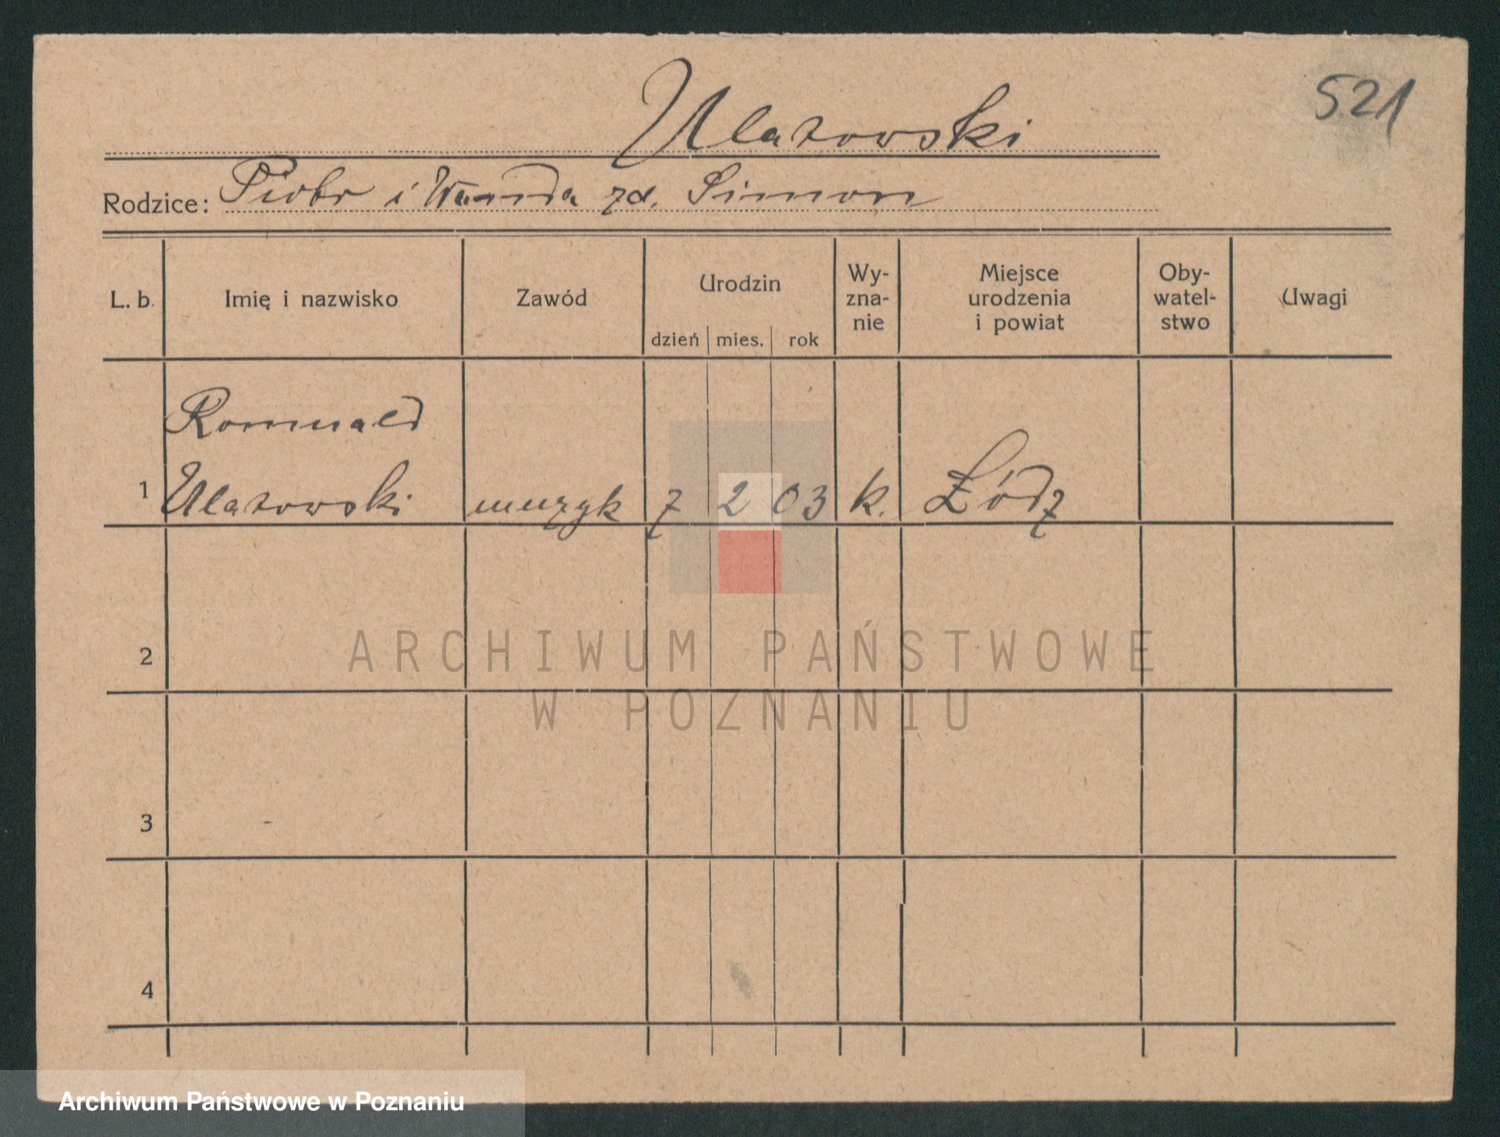 521
Ulatowski
Rodzice: Piotr i Wanda zd. Simon
L. b. Imię i nazwisko Zawód Urodzin dzień mies. rok Wy- zna- nie Miejsce urodzenia i powiat Oby- watel- stwo Uwagi
Romuald
1 Ulatowski muzyk 7 2 03 k. Łódz
2
ARCHIWUM PAŃSTWOWE
W POZNANIU
3
4
Archiwum Państwowe w Poznaniu